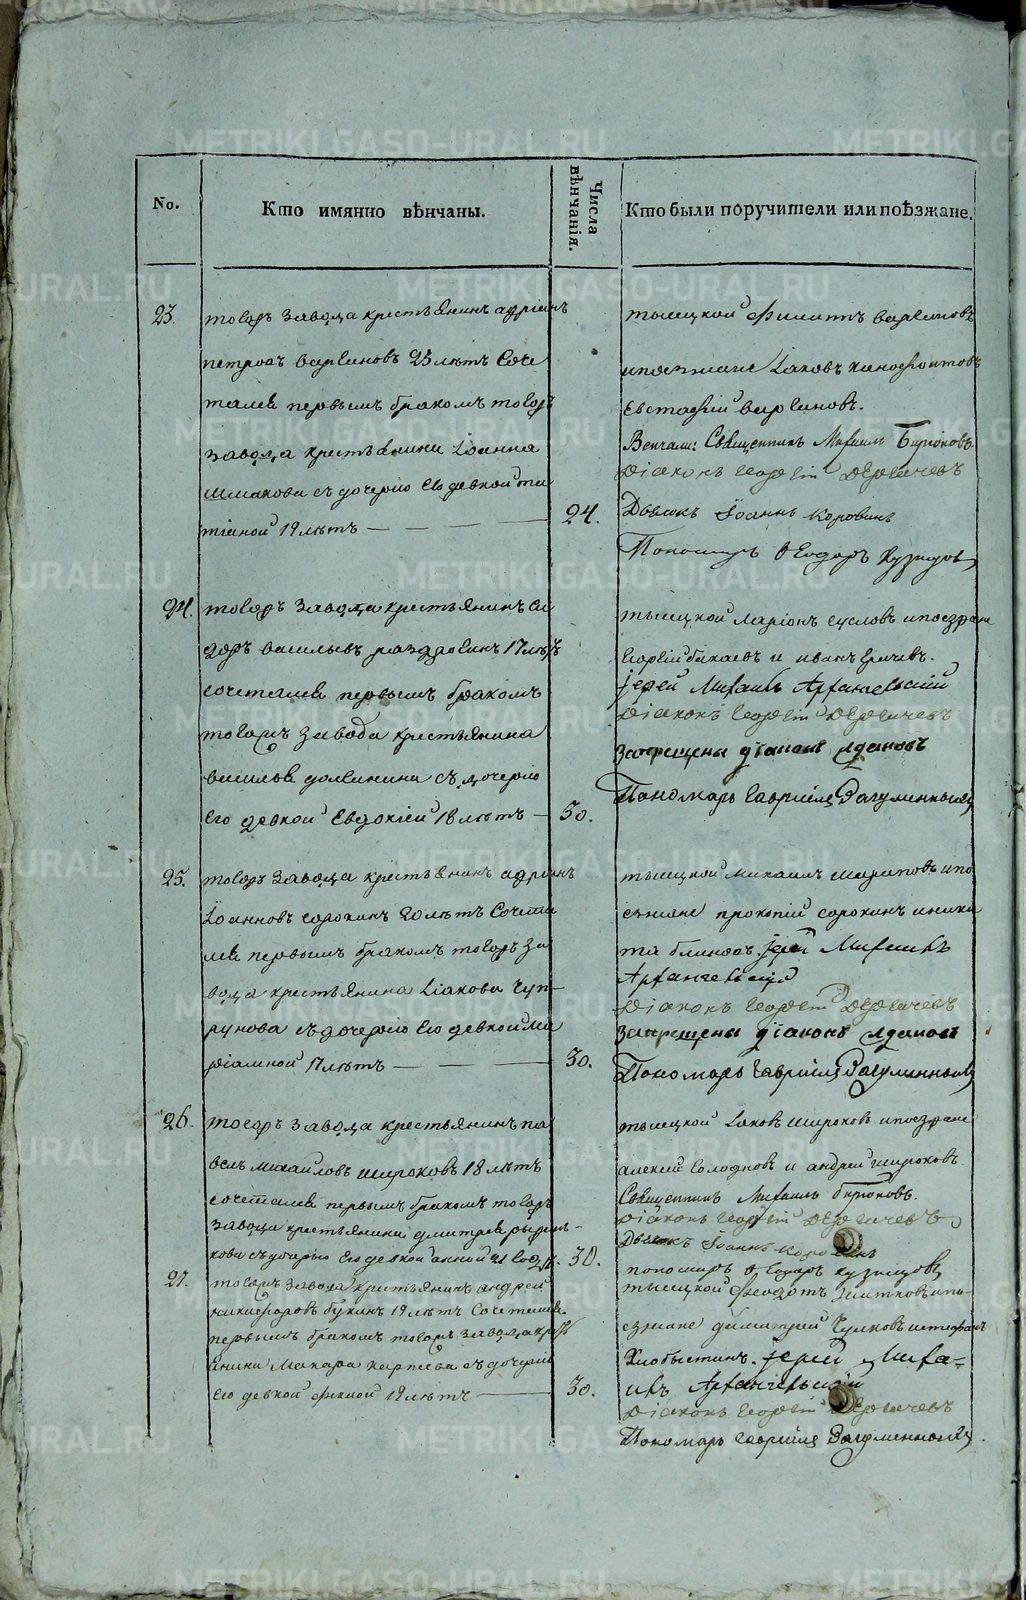 No.
Кто имянно вѣнчаны.
Числа вѣнчанія.
Кто были поручители или поѣзжане.
23.
тогоръ завода крестьянинъ адріанъ
петровъ 25 лѣтъ соче
тался первымъ бракомъ тогоръ
завода крестьянина Іоанна
Шмакова съ дочерію его девкой та
тіаной 19 лѣтъ
24.
тысецкой Филиппъ
ипоезжане Іаковъ
Евстафий
Венчали: Священникъ Михаилъ Бирюковъ
Діаконъ Георгій Дергачевъ
Дьячокъ Іоаннъ Коровинъ
Пономарь Ѳеодоръ Кузнецовъ
24.
тогоръ завода крестьянинъ Си
доръ васильевъ 17 лѣтъ
сочетался первымъ бракомъ
тогожъ завода крестьянина
василья съ дочерію
его девкой Евдокіей 18 лѣтъ
30.
тысецкой Ларіонъ сусловъ ипоезжане
Георгій бакаевъ и иванъ
Іерей Михаилъ Архангельский
Діаконъ Георгій Дергачевъ
Запрещены діаконъ Ждановъ
Пономарь Гавриилъ
25.
тогоръ завода крестьянинъ адріанъ
Іоанновъ сорокинъ 20 лѣтъ Сочета
лся первымъ бракомъ тогоръ за
вода крестьянина Іакова Чуп-
рунова съ дочерію его девкой Ма
ріамной 17 лѣтъ
30.
тысецкой Михаилъ ипо
езжане прокопій сорокинъ иники
та блиновъ. Іерей Михаилъ
Архангельский
Діаконъ Георгій Дергачевъ
Запрещены діаконъ Ждановъ
Пономарь Гавриилъ
26.
тогоръ завода крестьянинъ па
велъ михайловъ широковъ 18 лѣтъ
сочетался первымъ бракомъ тогоръ
завода крестьянина дмитрея
кова съ дочерью его девкой анной 21 года
30.
тысецкой Іаковъ широковъ ипоезжане
алексей Солодковъ и андрей широковъ
Священникъ Михаилъ Бирюковъ.
Діаконъ Георгій Дергачевъ
Дьячокъ Іоаннъ Коровинъ
пономарь Ѳеодоръ кузнецовъ
27.
тогоръ завода крестьянинъ андрей
никифоровъ букинъ 19 лѣтъ Сочетался
первымъ бракомъ тогоръ завода крест
янина Макара карпеева съ дочерію
его девкой феклой 19 лѣтъ
30.
тысецкой Феодотъ ипо-
езжане димитрей Чулковъ истефанъ
Хлобыстинъ. Іерей Миха-
илъ Архангельский
Діаконъ Георгій Дергачевъ
Пономарь Гавриилъ